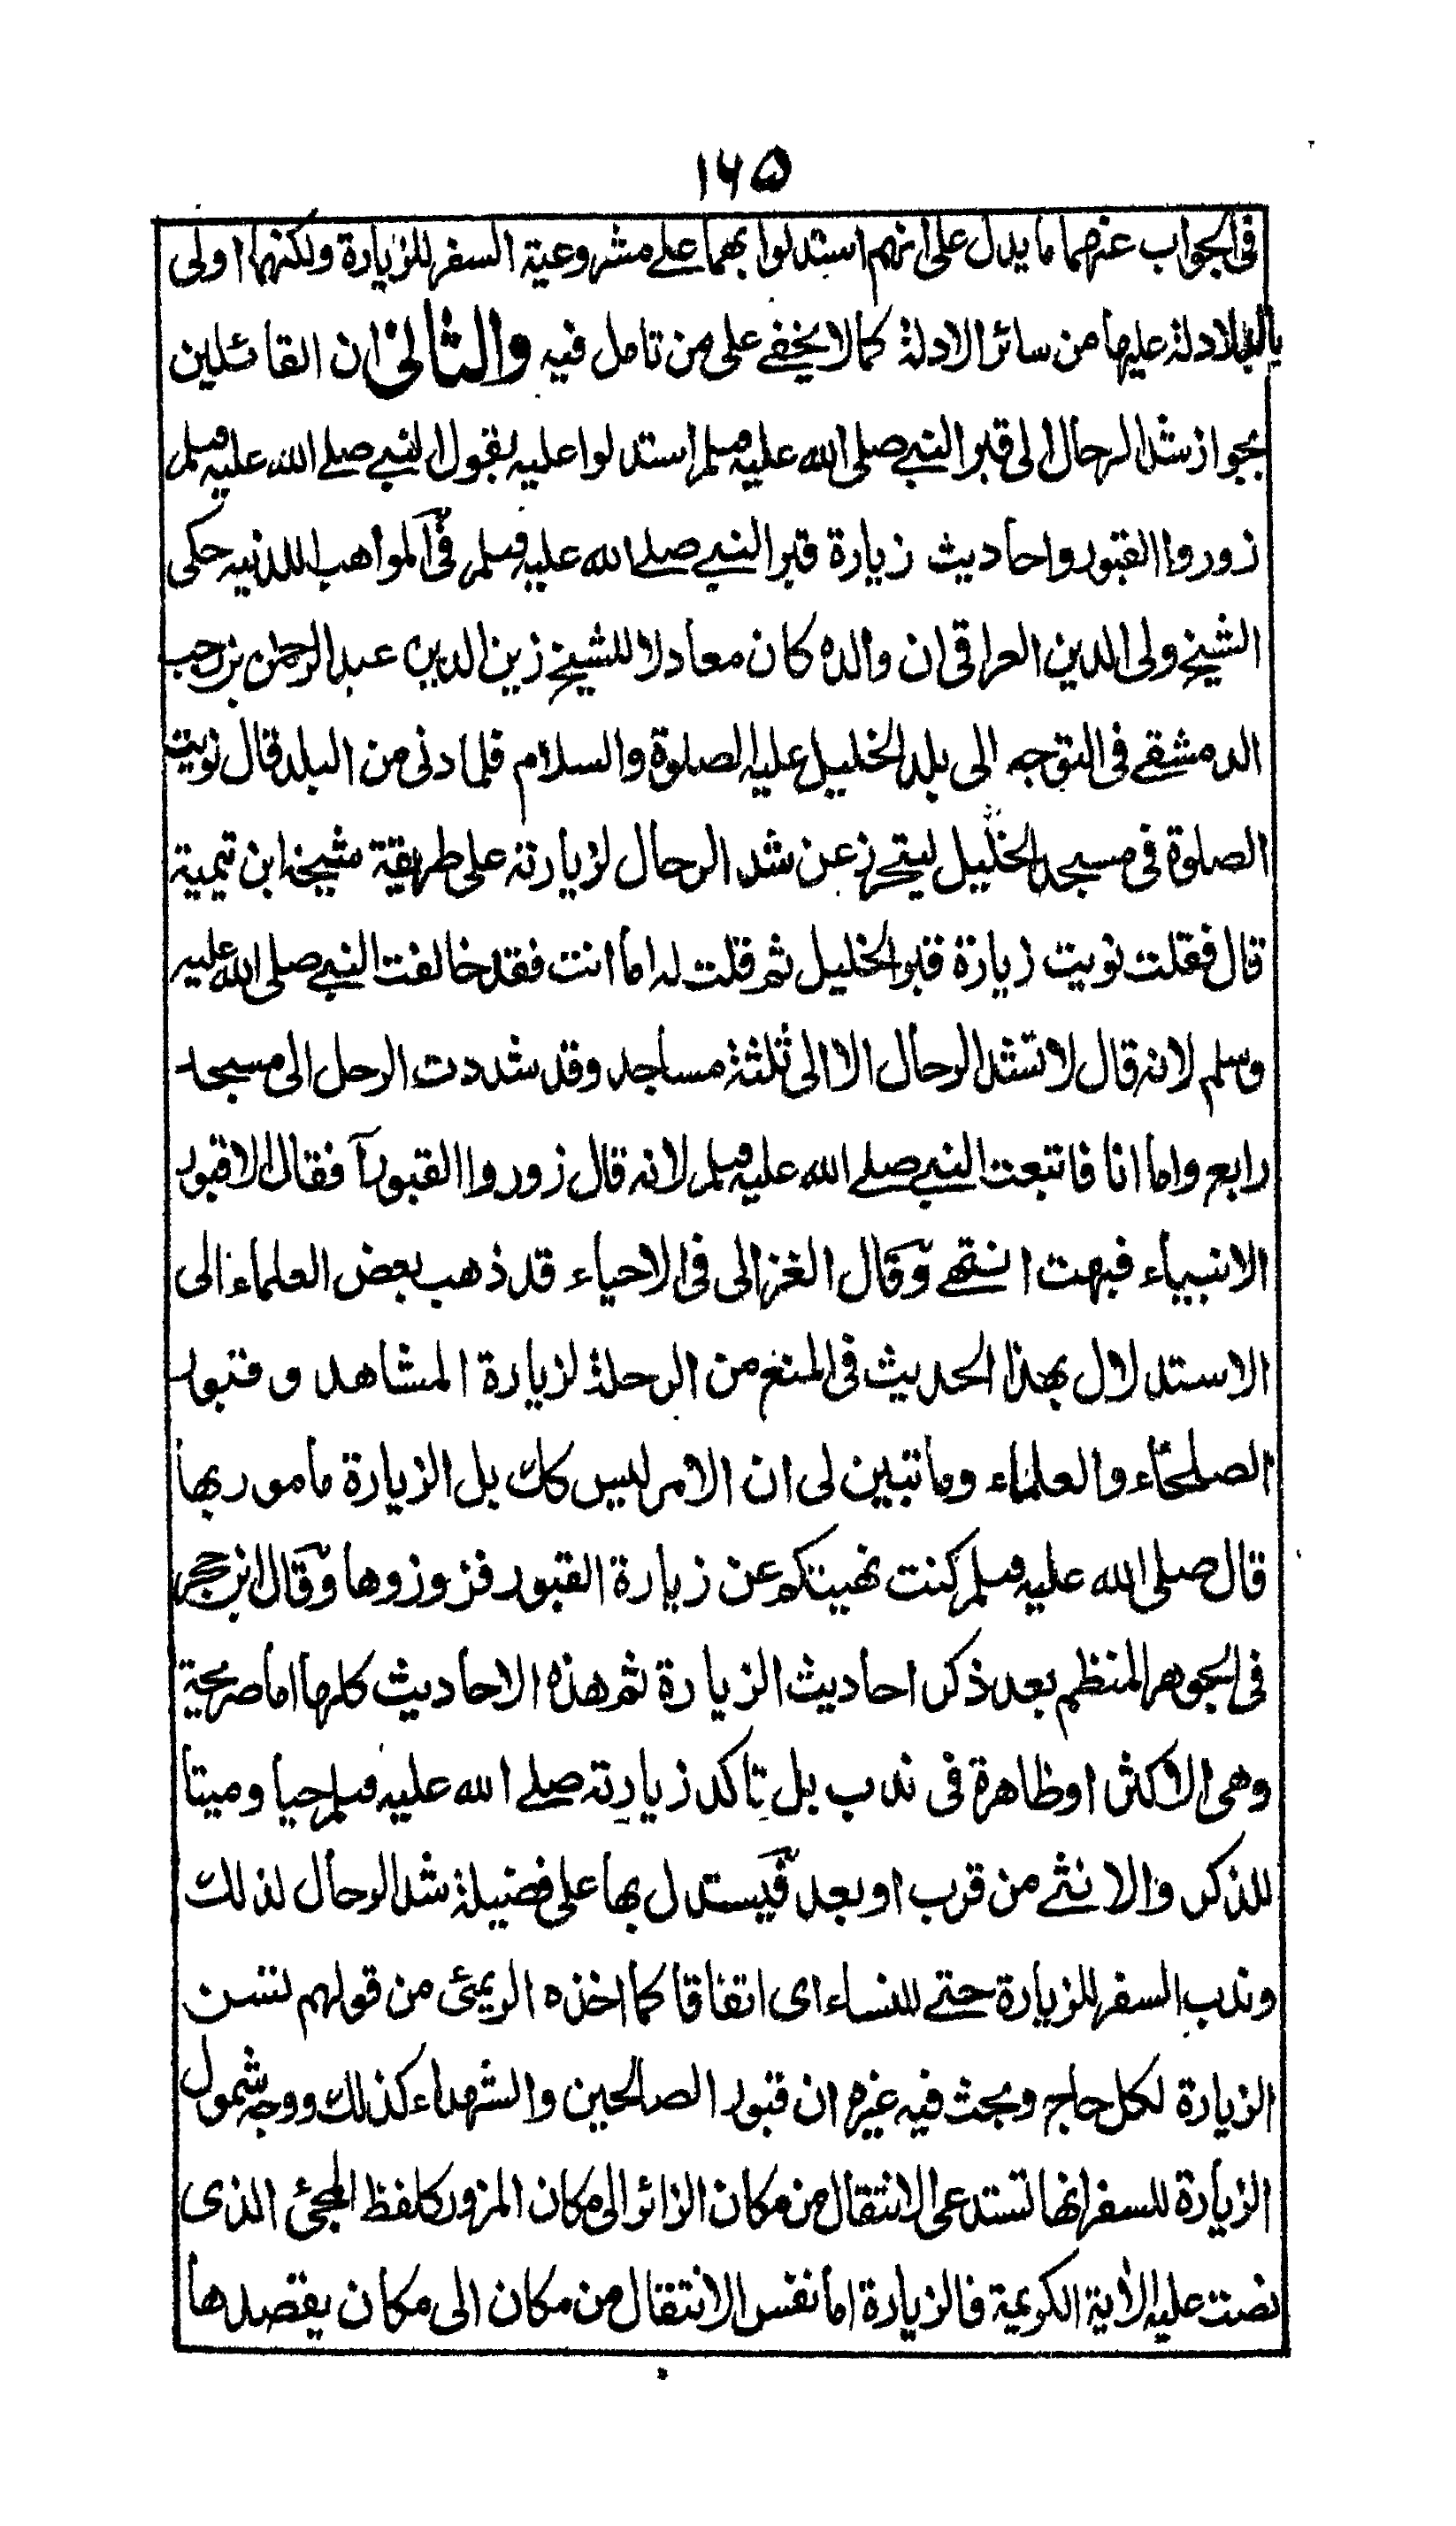 ١٦٥
فى الجواب عنهما ما يدل على انهم استدلوا بهما على مشروعية السفر للزيارة ولكنهما اولى
دلالة عليها من سائر الادلة كما لا يخفى على من تامل فيه والثانى ان القائلين
بجواز شد الرحال الى قبر النبى صلى الله عليه وسلم استدلوا عليه بقول النبى صلى الله عليه وسلم
زوروا القبور واحاديث زيارة قبر النبى صلى الله عليه وسلم فى المواهب اللدنيه حكى
الشيخ ولى الدين العراقى ان والده كان معادلا للشيخ زين الدين عبد الرحمن بن رجب
الدمشقى فى التوجه الى بلد الخليل عليه الصلوة والسلام فلما دنى من البلد قال نويت
الصلوة فى مسجد الخليل ليتحرز عن شد الرحال لزيارته على طريقة شيخه ابن تيمية
قال فقلت نويت زيارة قبر الخليل ثم قلت له اما انت فقد خالفت النبى صلى الله عليه
وسلم لانه قال لا تشد الرحال الا الى ثلثة مساجد وقد شددت الرحل الى مسجد
رابع واما انا فاتبعت النبى صلى الله عليه وسلم لانه قال زوروا القبور آ فقال الا قبور
الانبياء فبهت انتهى وقال الغزالى فى الاحياء قد ذهب بعض العلماء الى
الاستدلال بهذا الحديث فى المنع من الرحلة لزيارة المشاهد وقبور
الصلحاء والعلماء وما تبين لى ان الامر ليس كك بل الزيارة مامور بها
قال صلى الله عليه وسلم كنت نهيتكم عن زيارة القبور فزوروها وقال ابن حجر
فى الجوهر المنظم بعد ذكر احاديث الزيارة ثم هذه الاحاديث كلها اما صريحة
وهى الاكثر او ظاهرة فى ندب بل تاكد زيارته صلى الله عليه وسلم حيا وميتا
للذكر والانثى من قرب او بعد فيستدل بها على فضيلة شد الرحال لذلك
وندب السفر للزيارة حتى للنساء اى اتفاقا كما اخذه الريمئى من قولهم تسن
الزيارة لكل حاج وبحث فيه غيره ان قبور الصالحين والشهداء كذلك ووجه شمول
الزيارة للسفر انها تستدعى الانتقال من مكان الزائر الى مكان المزور كلفظ المجئ الذى
نصت عليه الآية الكريمة فالزيارة اما نفس الانتقال من مكان الى مكان يقصدها